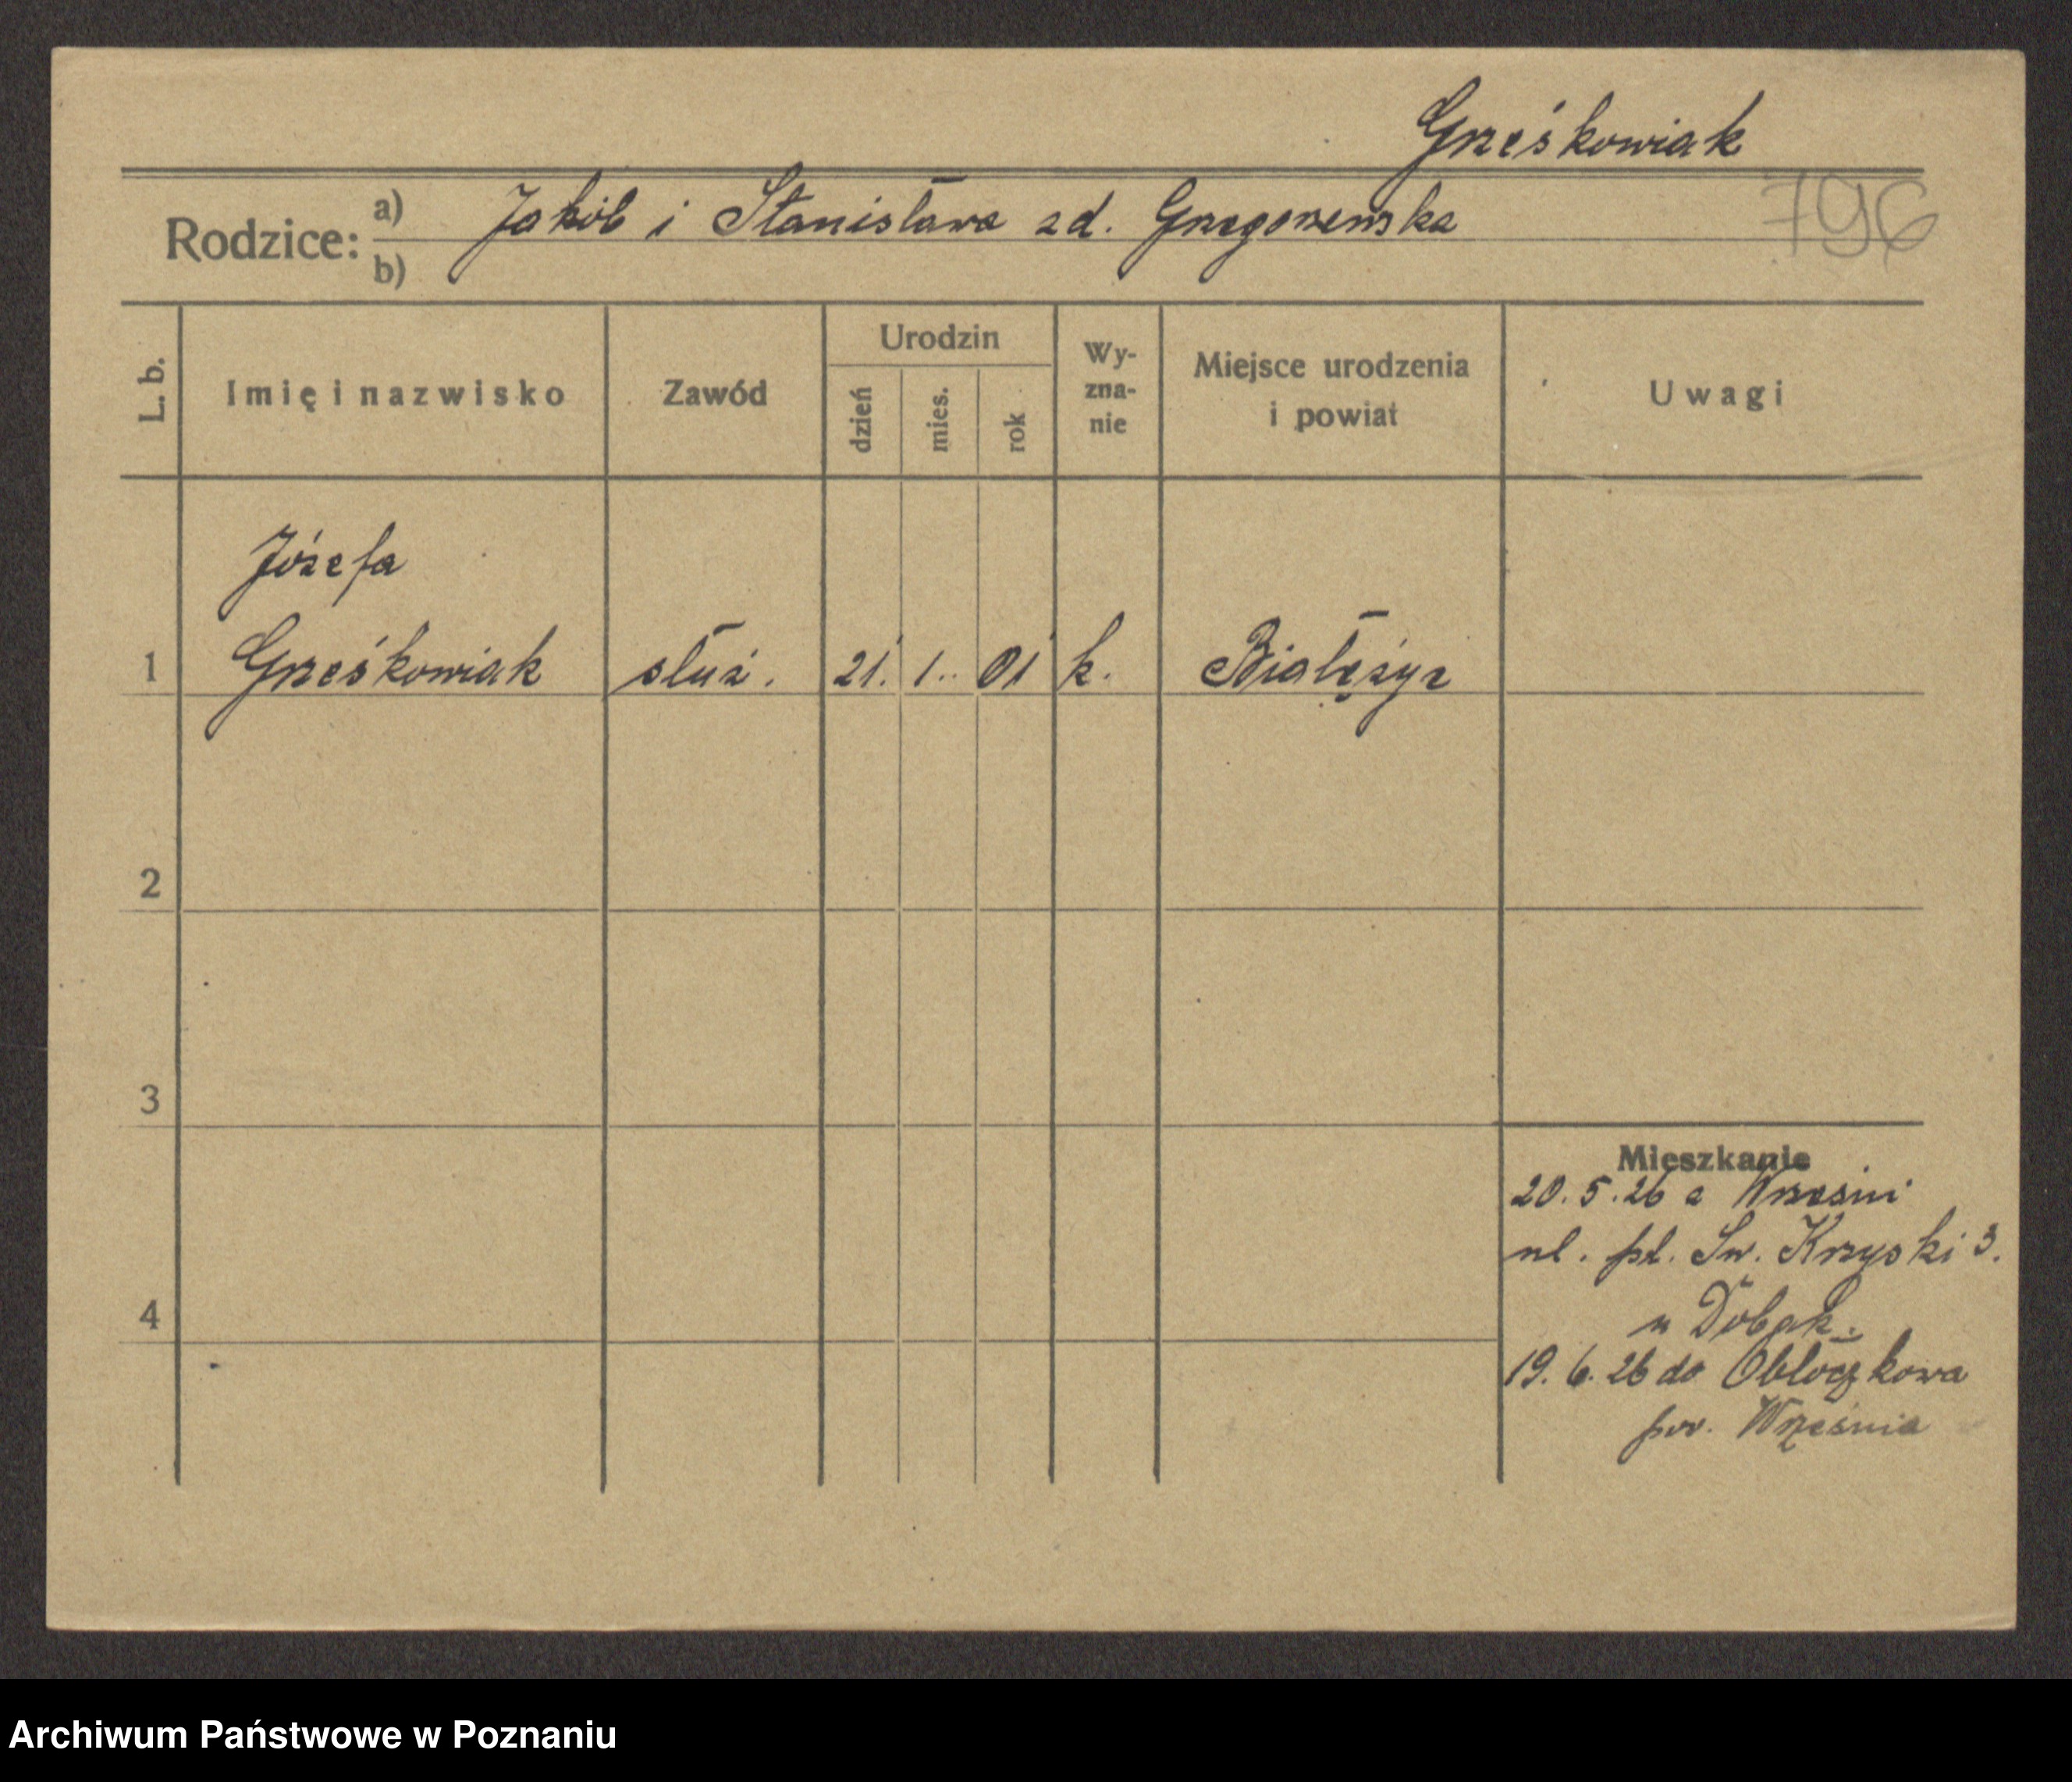 Grześkowiak
796
Rodzice: a) Jakób i Stanisława zd. Grzegorzewska
b)
L. b. Imię i nazwisko Zawód Urodzin dzień mies. rok Wy-zna-nie Miejsce urodzenia i powiat Uwagi
Józefa
1 Grześkowiak służ. 21. 1. 01 k. Białężyz
2
3
Mieszkanie
20. 5. 26 z Wrześni
pl. Św. Krzyski 3.
4
u Dobak.
19. 6. 26 do Obłoczkowa
pow. Września
Archiwum Państwowe w Poznaniu